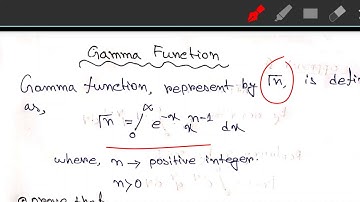 Gamma Function
Gamma function, represent by √n, is defi
as,
√n = ∫₀^∞ e^-x x^n-1 dx
where, n → positive integer.
n>0
prove that